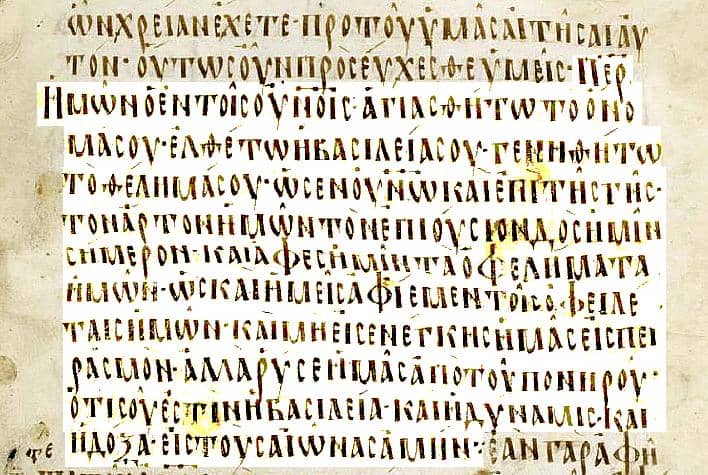 ὧΝΧΡΕΙΑΝΕΧΕΤΕ·ΠΡΟΤΟῦΥΜᾶΣΑΙΤΗΣΑΙΑΥ
ΤΟΝ·ΟΥΤΩΣΟῦΝΠΡΟΣΕΥΧΕΣΘΕΥΜΕΙΣ·ΠΕΡ
ΗΜΩΝΟΕΝΤΟΙΣΟΥΝΟΙΣ·ΑΓΙΑΣΘΗΤΩΤΟΟΝΟ
ΜΑΣΟΥ·ΕΛΘΕΤΩΗΒΑΣΙΛΕΙΑΣΟΥ·ΓΕΝΗΘΗΤΩ
ΤΟΘΕΛΗΜΑΣΟΥ·ΩΣΕΝΟΥΝΩΚΑΙΕΠΙΤΗΣΓΗΣ·
ΤΟΝΑΡΤΟΝΗΜΩΝΤΟΝΕΠΙΟΥΣΙΟΝΔΟΣΗΜΙΝ
ΣΗΜΕΡΟΝ·ΚΑΙΑΦΕΣΗΜΙΝΤΑΟΦΕΛΗΜΑΤΑ
ΗΜΩΝ·ΩΣΚΑΙΗΜΕΙΣΑΦΙΕΜΕΝΤΟΙΣΟΦΕΙΛΕ
ΤΑΙΣΗΜΩΝ·ΚΑΙΜΗΕΙΣΕΝΕΓΚΗΣΗΜΑΣΕΙΣΠΕΙ
ΡΑΣΜΟΝ·ΑΛΛΑΡΥΣΕΗΜΑΣΑΠΟΤΟΥΠΟΝΗΡΟΥ·
ΟΤΙΣΟΥΕΣΤΙΝΗΒΑΣΙΛΕΙΑ·ΚΑΙΗΔΥΝΑΜΙΣ·ΚΑΙ
ΗΔΟΞΑ·ΕΙΣΤΟΥΣΑΙΩΝΑΣΑΜΗΝ·ΕΑΝΓΑΡΑΦΗ